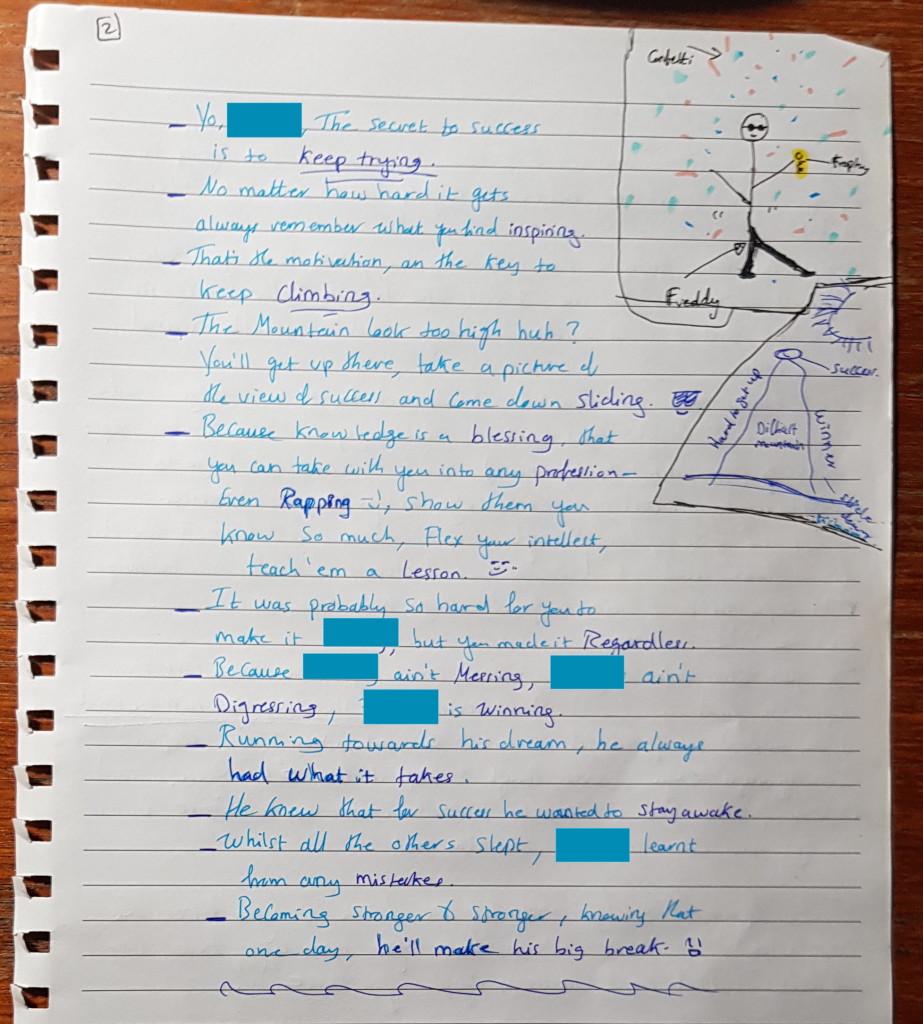 2
Confetti
Yo, , The secret to success
is to keep trying.
Trophy
- No matter how hard it gets
always remember what you find inspiring.
- That's the motivation, an the key to
keep climbing.
Freddy
- The Mountain look too high huh?
You'll get up there, take a picture of
the view of success and come down sliding.
success.
Hard to get up
Difficult
mountain
Winner
- Because knowledge is a blessing, that
you can take with you into any profession -
Even Rapping :), show them you
know so much, Flex your intellect,
teach 'em a Lesson.
slide
down
- It was probably so hard for you to
make it , but you made it Regardless.
- Because , ain't Messing, ain't
Digressing, is winning.
- Running towards his dream, he always
had what it takes.
- He knew that for success he wanted to stay awake.
- Whilst all the others slept, learnt
from any mistakes.
- Becoming stronger & stronger, knowing that
one day, he'll make his big break.